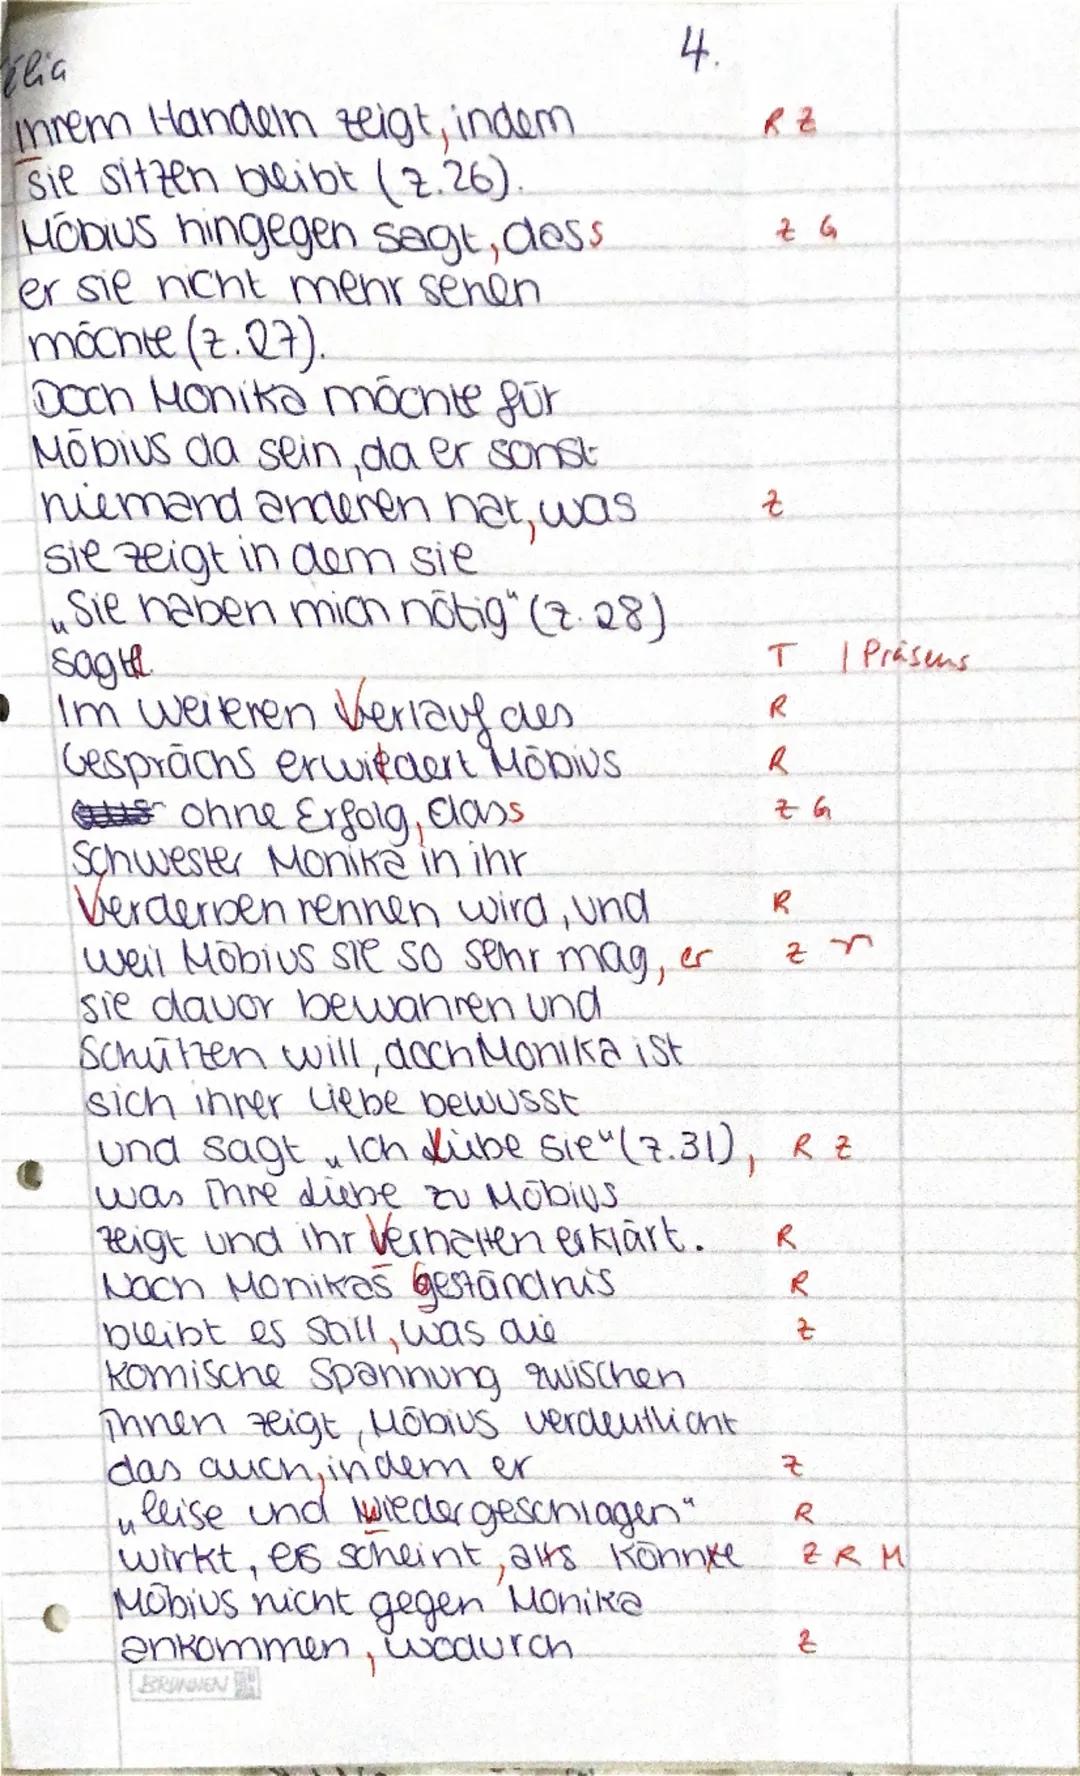 4.
ihrem Handeln zeigt, indem R Z
sie sitzen bleibt (Z.26).
Möbius hingegen sagt, dass Z G
er sie nicht mehr sehen
möchte (Z.27).
Doch Monika möchte für
Möbius da sein, da er sonst
niemand anderen hat, was Z
sie zeigt in dem sie
„Sie haben mich nötig" (Z.28)
sagt. T | Präsens
Im weiteren Verlauf des R
Gesprächs erwidert Möbius R
ohne Erfolg, dass Z G
Schwester Monika in ihr
Verderben rennen wird, und R
weil Möbius sie so sehr mag, er Z
sie davor bewahren und
schützen will, doch Monika ist
sich ihrer Liebe bewusst
und sagt „Ich liebe sie" (Z.31), R Z
was ihre Liebe zu Möbius
zeigt und ihr Verhalten erklärt. R
Nach Monikas Geständnis R
bleibt es still, was die Z
komische Spannung zwischen
ihnen zeigt, Möbius verdeutlicht
das auch, indem er Z
„leise und niedergeschlagen" R
wirkt, es scheint, als könnte Z R M
Möbius nicht gegen Monika
ankommen, wodurch Z
BRUNNEN